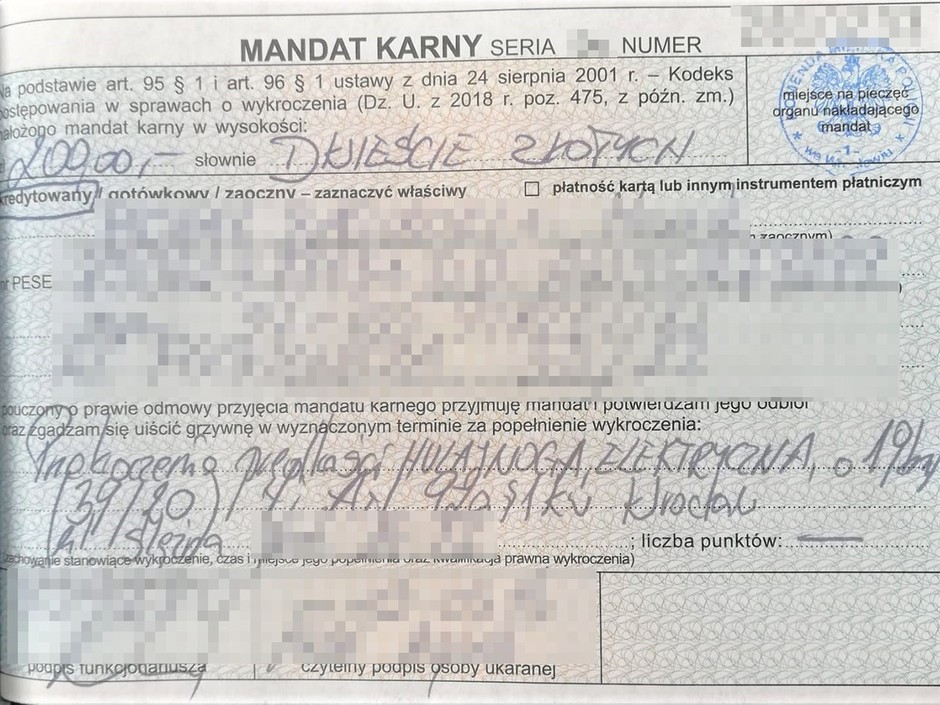 MANDAT KARNY SERIA NUMER
na podstawie art. 95 § 1 i art. 96 § 1 ustawy z dnia 24 sierpnia 2001 r. – Kodeks
postępowania w sprawach o wykroczenia (Dz. U. z 2018 r. poz. 475, z późn. zm.)
nałożono mandat karny w wysokości:
miejsce na pieczęć
organu nakładającego
mandat
200,00,- słownie DWIEŚCIE ZŁOTYCH
kredytowany / gotówkowy / zaoczny – zaznaczyć właściwy
płatność kartą lub innym instrumentem płatniczym
zaocznym)
nr PESE
pouczony o prawie odmowy przyjęcia mandatu karnego przyjmuję mandat i potwierdzam jego odbiór
oraz zgadzam się uiścić grzywnę w wyznaczonym terminie za popełnienie wykroczenia:
prędkości HULAJNOGĄ ELEKTRYCZNĄ o 19
(39/20) Wrocław
ul. Ślężna ; liczba punktów: —
(zachowanie stanowiące wykroczenie, czas i miejsce jego popełnienia oraz kwalifikacja prawna wykroczenia)
podpis funkcjonariusza
czytelny podpis osoby ukaranej